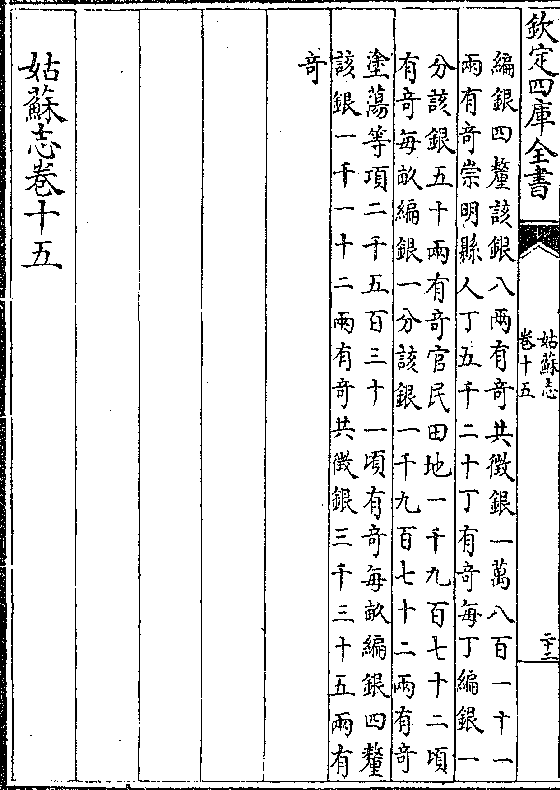 欽定四庫全書
姑蘇志
卷十五
二十三
編銀四釐該銀八兩有奇共徴銀一萬八百一十一
兩有奇崇明縣人丁五千二十丁有奇每丁編銀一
分該銀五十兩有奇官民田地一千九百七十二頃
有奇每畝編銀一分該銀一千九百七十二兩有奇
塗蕩等項二千五百三十一頃有奇每畝編銀四釐
該銀一千一十二兩有奇共徴銀三千三十五兩有
奇
姑蘇志卷十五